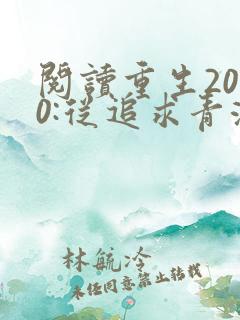 閱讀重生20
0:從追求青
林航冷
未任同意禁止转载